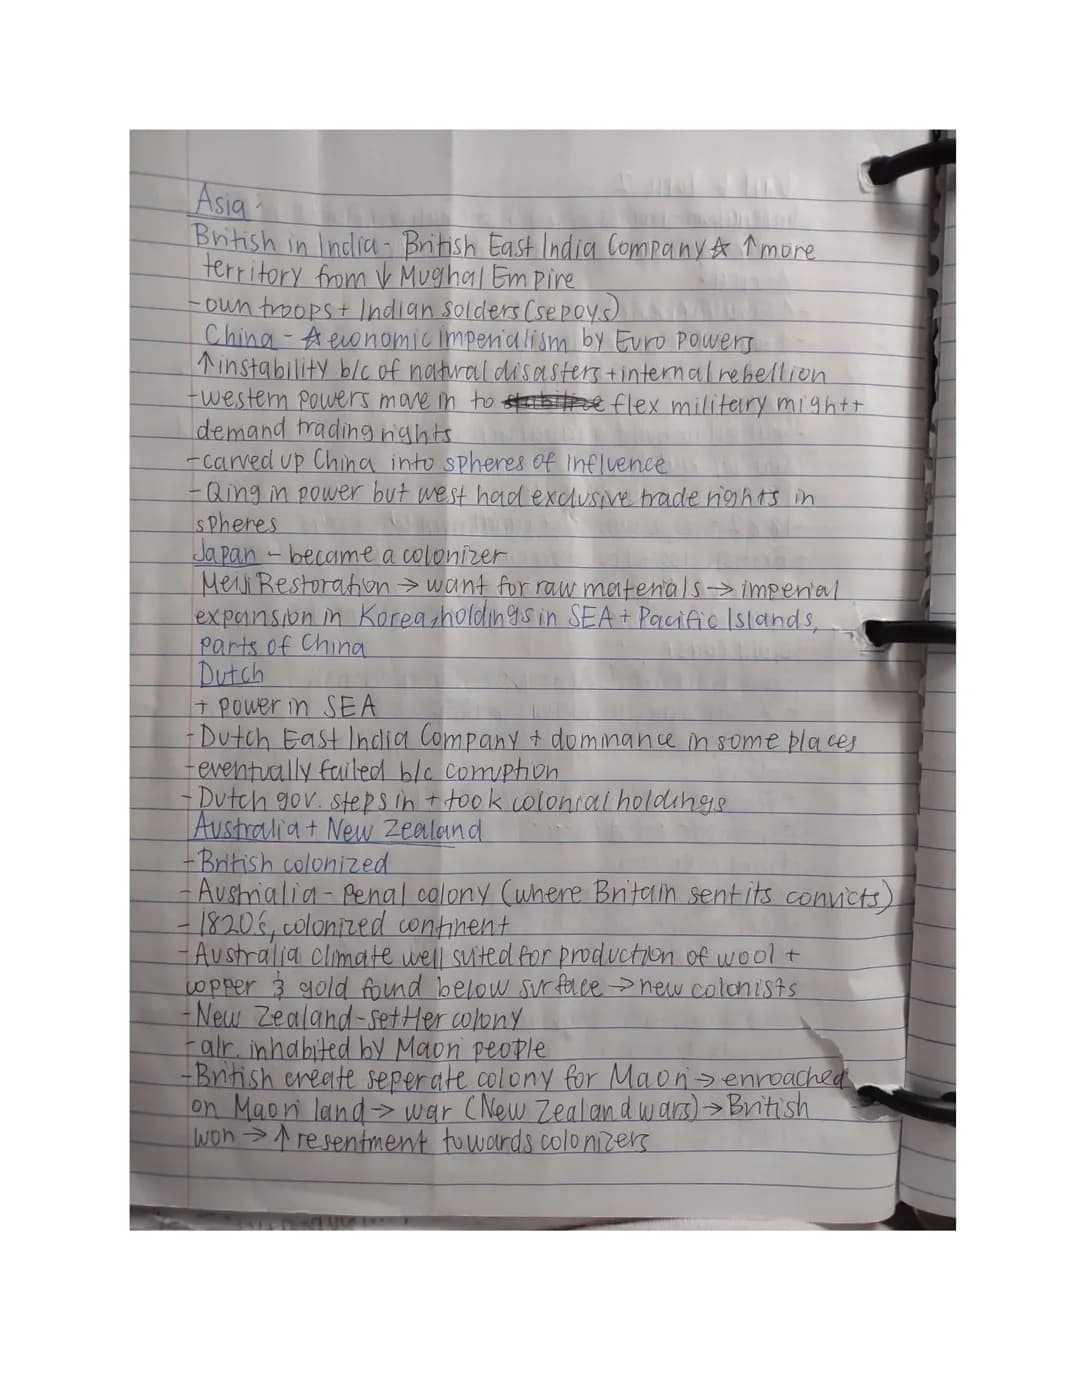 Asia:
British in India - British East India Company ☆ ↑ more
territory from ↓ Mughal Empire
- own troops + Indian solders (sepoys)
China - ☆ economic imperialism by Euro powers
↑ instability b/c of natural disasters + internal rebellion
- western powers move in to flex military might +
demand trading rights
- carved up China into spheres of influence
- Qing in power but west had exclusive trade rights in
spheres
Japan - became a colonizer
Meiji Restoration → want for raw materials → imperial
expansion in Korea, holdings in SEA + Pacific Islands,
parts of China
Dutch
+ power in SEA
- Dutch East India Company + dominance in some places
- eventually failed b/c corruption
- Dutch gov. steps in + took colonial holdings
Australia + New Zealand
- British colonized
- Ausrialia - Penal colony (where Britain sent its convicts)
- 1820's, colonized continent
- Australia climate well suted for production of wool +
copper & gold found below surface → new colonists
- New Zealand - settler colony
- alr. inhabited by Maori people
- British create seperate colony for Maori → enroached
on Maori land → war (New Zealand wars) → British
won → ↑ resentment towards colonizers